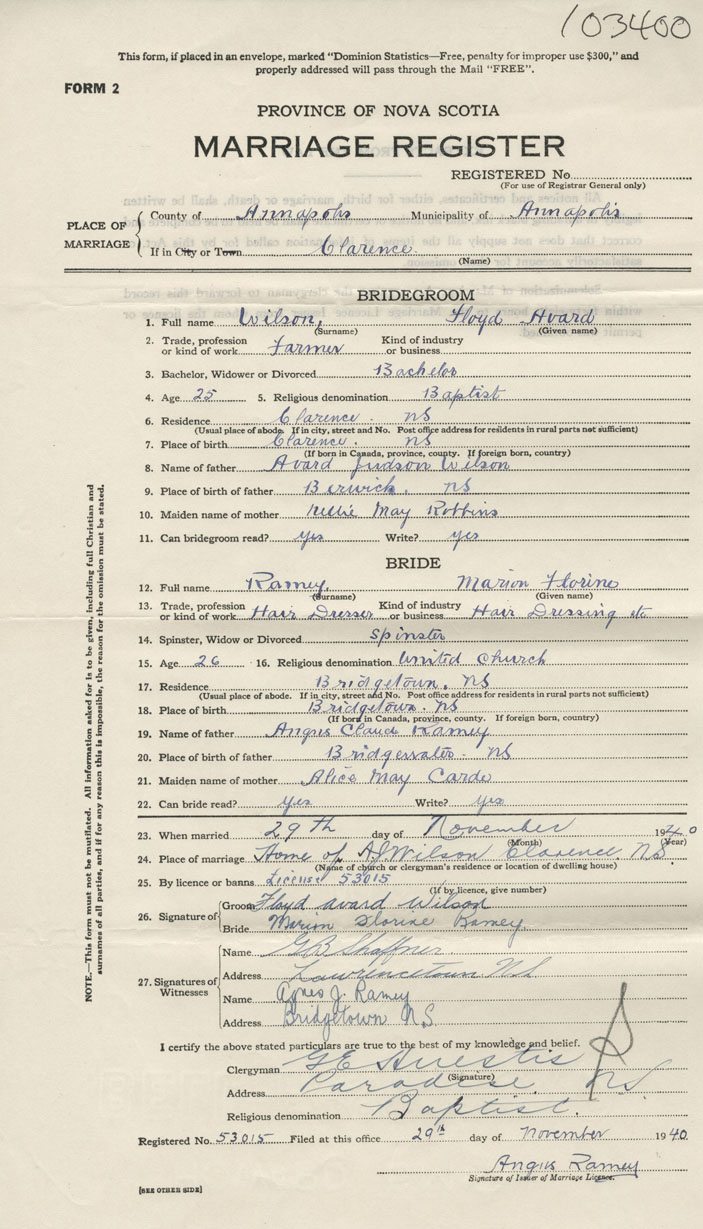 103400
This form, if placed in an envelope, marked "Dominion Statistics—Free, penalty for improper use $300," and
properly addressed will pass through the Mail "FREE".
FORM 2
PROVINCE OF NOVA SCOTIA
MARRIAGE REGISTER
REGISTERED No.
(For use of Registrar General only)
PLACE OF MARRIAGE
County of Annapolis Municipality of Annapolis
If in City or Town Clarence
(Name)
BRIDEGROOM
1. Full name Wilson, Floyd Avard
(Surname) (Given name)
2. Trade, profession or kind of work Farmer Kind of industry or business
3. Bachelor, Widower or Divorced Bachelor
4. Age 25 5. Religious denomination Baptist
6. Residence Clarence. NS
(Usual place of abode. If in city, street and No. Post office address for residents in rural parts not sufficient)
7. Place of birth Clarence. NS
(If born in Canada, province, county. If foreign born, country)
8. Name of father Avard Judson Wilson
9. Place of birth of father Berwick. NS
10. Maiden name of mother Nellie May Robbins
11. Can bridegroom read? yes Write? yes
BRIDE
12. Full name Ramey, Marion Florine
(Surname) (Given name)
13. Trade, profession or kind of work Hair Dresser Kind of industry or business Hair Dressing etc
14. Spinster, Widow or Divorced Spinster
15. Age 26 16. Religious denomination United Church
17. Residence Bridgetown, NS
(Usual place of abode. If in city, street and No. Post office address for residents in rural parts not sufficient)
18. Place of birth Bridgetown. NS
(If born in Canada, province, county. If foreign born, country)
19. Name of father Angus Claud Ramey
20. Place of birth of father Bridgewater. NS
21. Maiden name of mother Alice May Carde
22. Can bride read? yes Write? yes
23. When married 29th day of November 1940
(Month) (Year)
24. Place of marriage Home of A J Wilson Clarence. NS
(Name of church or clergyman's residence or location of dwelling house)
25. By licence or banns License 53015
(If by licence, give number)
26. Signature of
Groom Floyd Avard Wilson
Bride Marion Florine Ramey
27. Signatures of Witnesses
Name G B Shaffner
Address Lawrencetown N.S.
Name Agnes J. Ramey
Address Bridgetown N.S.
I certify the above stated particulars are true to the best of my knowledge and belief.
Clergyman G E
(Signature)
Address Paradise NS
Religious denomination Baptist.
Registered No. 53015 Filed at this office 29th day of November 1940
Angus Ramey
Signature of Issuer of Marriage Licence.
[SEE OTHER SIDE]
NOTE.—This form must not be mutilated. All information asked for is to be given, including full Christian and
surnames of all parties, and if for any reason this is impossible, the reason for the omission must be stated.